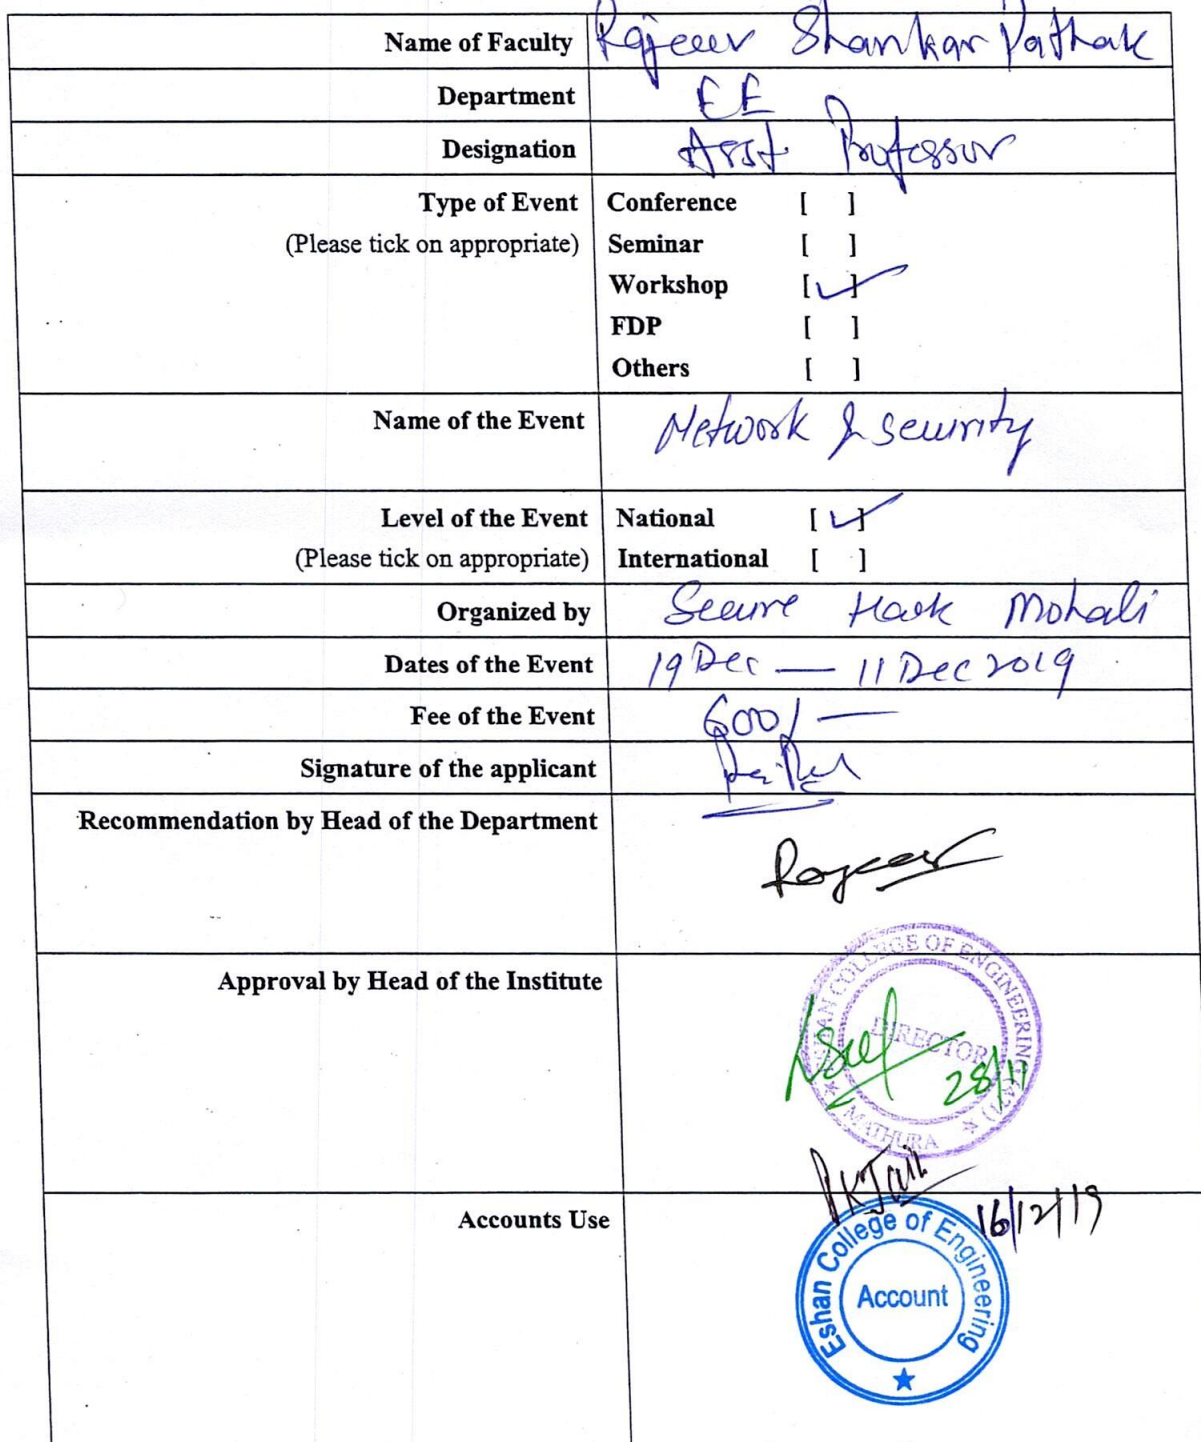 Name of Faculty Rajeev Shankar Pathak
Department EE
Designation Asst Professor
Type of Event
(Please tick on appropriate)
Conference [ ]
Seminar [ ]
Workshop [✓]
FDP [ ]
Others [ ]
Name of the Event Network & security
Level of the Event
(Please tick on appropriate)
National [✓]
International [ ]
Organized by Secure Hack Mohali
Dates of the Event 19 Dec — 11 Dec 2019
Fee of the Event 600/-
Signature of the applicant
Recommendation by Head of the Department
Rajeev
Approval by Head of the Institute
ESHAN COLLEGE OF ENGINEERING
DIRECTOR
MATHURA
28/11
PKJain
16/12/19
Accounts Use
Eshan College of Engineering
Account